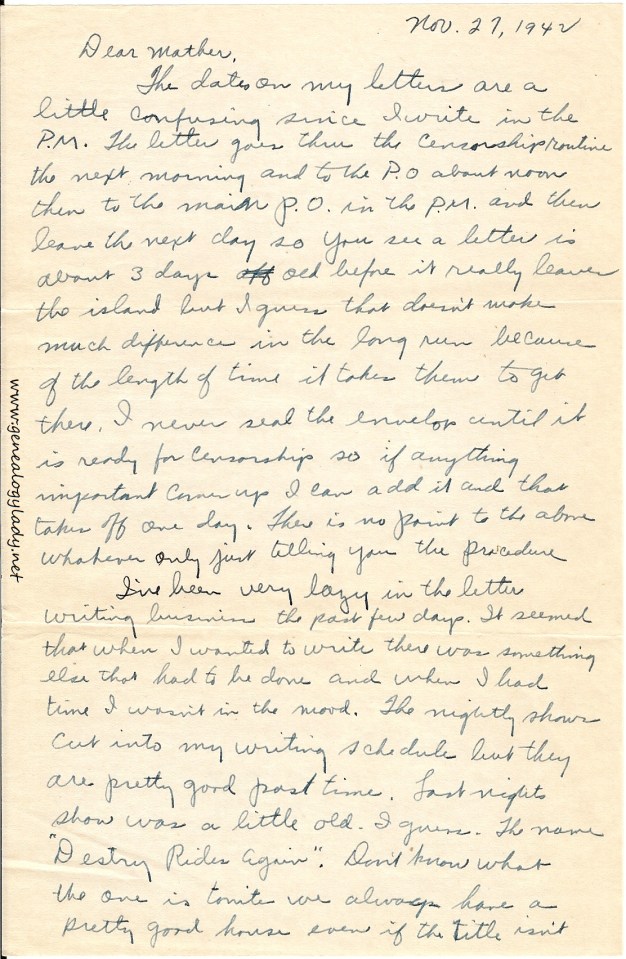 Nov. 27, 1942
Dear Mother,
The dates on my letters are a
little confusing since I write in the
P.M. The letter goes thru the Censorship routine
the next morning and to the P.O about noon
then to the main P.O. in the P.M. and then
leave the next day so you see a letter is
about 3 days old before it really leaves
the island but I guess that doesn't make
much difference in the long run because
of the length of time it takes them to get
there. I never seal the envelop until it
is ready for Censorship so if anything
important Comes up I can add it and that
takes off one day. There is no point to the above
whatever only just telling you the procedure
I've been very lazy in the letter
writing business the past few days. It seemed
that when I wanted to write there was something
else that had to be done and when I had
time I wasn't in the mood. The nightly shows
Cut into my writing schedule but they
are pretty good past time. Last nights
show was a little old. I guess. The name
"Destry Rides Again". Don't know what
the one is tonite we always have a
pretty good house even if the title isn't
www.genealogylady.net